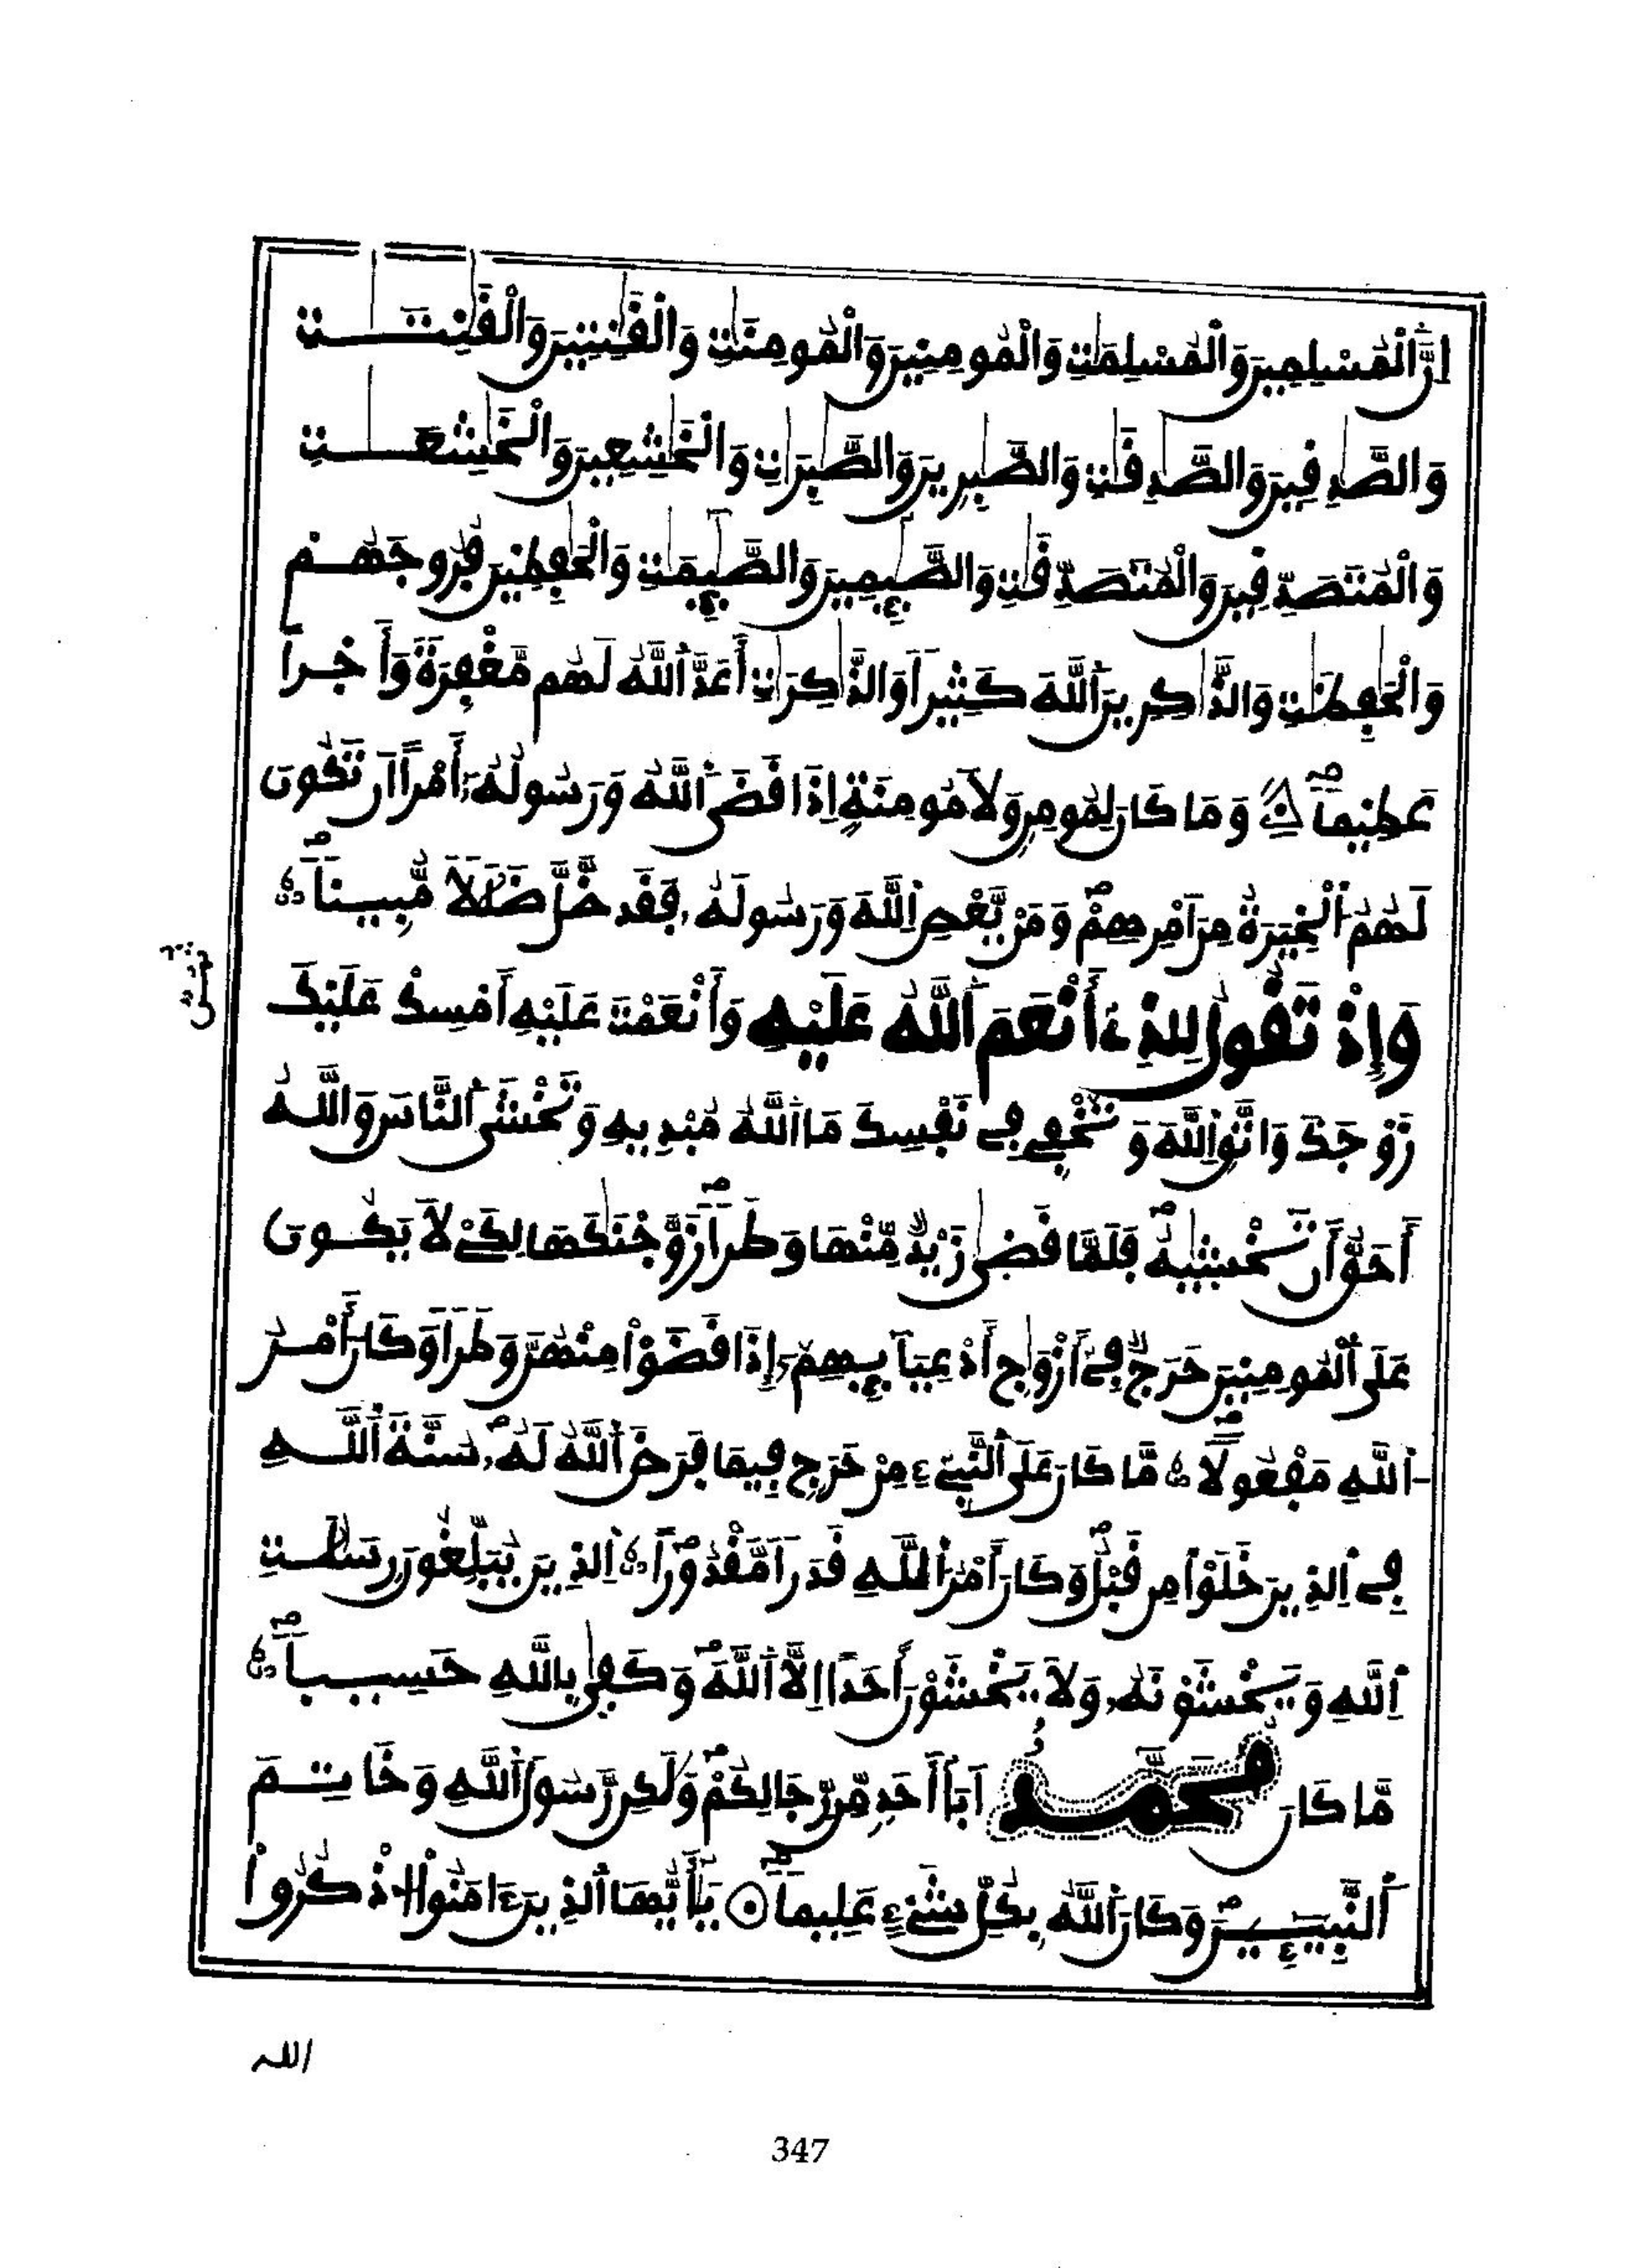 إِنَّ ٱلْمُسْلِمِينَ وَالْمُسْلِمَٰتِ وَالْمُومِنِينَ وَالْمُومِنَٰتِ وَالْقَٰنِتِينَ وَالْقَٰنِتَٰتِ
وَالصَّٰدِقِينَ وَالصَّٰدِقَٰتِ وَالصَّٰبِرِينَ وَالصَّٰبِرَٰتِ وَالْخَٰشِعِينَ وَالْخَٰشِعَٰتِ
وَالْمُتَصَدِّقِينَ وَالْمُتَصَدِّقَٰتِ وَالصَّٰٓئِمِينَ وَالصَّٰٓئِمَٰتِ وَالْحَٰفِظِينَ فُرُوجَهُمْ
وَالْحَٰفِظَٰتِ وَالذَّٰكِرِينَ ٱللَّهَ كَثِيراً وَالذَّٰكِرَٰتِ أَعَدَّ ٱللَّهُ لَهُم مَّغْفِرَةً وَأَجْراً
عَظِيماً وَمَا كَانَ لِمُومِنٍ وَلَا مُومِنَةٍ إِذَا قَضَى ٱللَّهُ وَرَسُولُهُۥٓ أَمْراً أَن تَكُونَ
لَهُمُ ٱلْخِيَرَةُ مِنَ أَمْرِهِمْ وَمَنْ يَّعْصِ ٱللَّهَ وَرَسُولَهُۥ فَقَد ضَّلَّ ضَلَٰلًا مُّبِيناً
وَإِذْ تَقُولُ لِلذِےٓ أَنْعَمَ ٱللَّهُ عَلَيْهِ وَأَنْعَمْتَ عَلَيْهِ أَمْسِكْ عَلَيْكَ
زَوْجَكَ وَاتَّقِ ٱللَّهَ وَتُخْفِے فِے نَفْسِكَ مَا ٱللَّهُ مُبْدِيهِ وَتَخْشَى ٱلنَّاسَ وَاللَّهُ
أَحَقُّ أَن تَخْشَيٰهُ فَلَمَّا قَضَىٰ زَيْدٌ مِّنْهَا وَطَراً زَوَّجْنَٰكَهَا لِكَےْ لَا يَكُونَ
عَلَى ٱلْمُومِنِينَ حَرَجٌ فِےٓ أَزْوَٰجِ أَدْعِيَآئِهِمُۥٓ إِذَا قَضَوْاْ مِنْهُنَّ وَطَراً وَكَانَ أَمْرُ
ٱللَّهِ مَفْعُولًا مَّا كَانَ عَلَى ٱلنَّبِےٓءِ مِنْ حَرَجٍ فِيمَا فَرَضَ ٱللَّهُ لَهُۥ سُنَّةَ ٱللَّهِ
فِے ٱلذِينَ خَلَوْاْ مِن قَبْلُ وَكَانَ أَمْرُ ٱللَّهِ قَدَراً مَّقْدُوراً ٱلذِينَ يُبَلِّغُونَ رِسَٰلَٰتِ
ٱللَّهِ وَيَخْشَوْنَهُۥ وَلَا يَخْشَوْنَ أَحَداً إِلَّا ٱللَّهَ وَكَفَىٰ بِاللَّهِ حَسِيباً
مَّا كَانَ مُحَمَّدٌ أَبَآ أَحَدٍ مِّن رِّجَالِكُمْ وَلَٰكِن رَّسُولَ ٱللَّهِ وَخَاتِمَ
ٱلنَّبِيٓـِٕينَ وَكَانَ ٱللَّهُ بِكُلِّ شَےْءٍ عَلِيماً يَٰٓأَيُّهَا ٱلذِينَ ءَامَنُواْ ٱذْكُرُواْ
الله
347